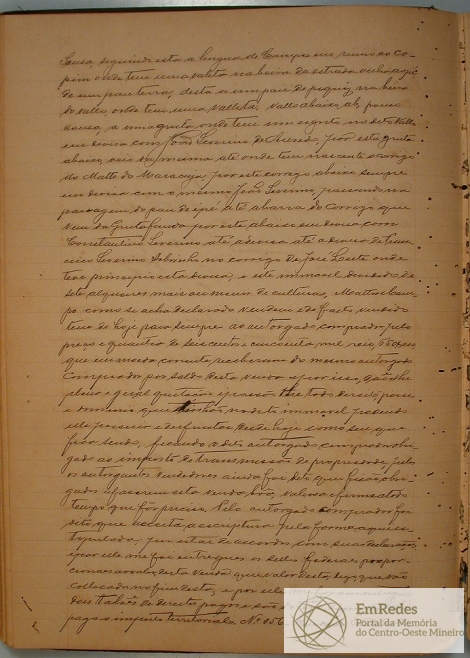 Sousa, seguindo esta a lingua do Campo em rumo ao Co-
pim onde tem uma valeta na beira da estrada
de um pau terra, desta a um pau de piqui, na beira
do vallo, onde tem uma valleta, vallo abaixo, ate pouca
cousa, a uma gruta onde tem um no dito vallo
em divisa com João Severino de por esta gruta
abaixo, até onde tem nascente o corrego
do Matto do por este corrego abaixo sempre
em divisa com o mesmo João Severino, passando na
passagem do pau de ipé até a barra do Corrego que
vem da Gruta funda por este abaixo em divisa com
Constantino Severino até a divisa de Fran-
cisco Severino Sobrinho no corrigo de José Leite onde
teve principio esta divisa; e este immovel
sete alqueires mais ou menos de culturas, Mattos e cam-
po como se acha declarado vendem e de facto vendido
tem de hoje para sempre ao outorgado comprador pelo
preço e quantia de seiscentos e cincoenta mil reis,
que em moeda corrente receberam do mesmo outorgado
Comprador, por saldo desta venda e por isso, dão-lhe
plena e geral quitação e todo direito, posse
e dominio que tinham no dito immovel podendo
elle possuir e desfructar desde hoje como seu que
fica sendo, ficando o dito outorgado comprador obri-
gado ao imposto de transmissão de propriedade, pelos
os outorgantes vendedores ainda foi dito que ficão obri-
gados a fazerem esta venda, boa, valiosa e firme a todo
tempo que fôr preciso. Pelo outorgado Comprador foi
dito, que acceita a escriptura pela forma aqui es-
tipulada, por estar de accordo com sua declaração,
e por elle me foi entregues os sellos federaes propor-
cionaes ao valor desta venda que são
collocados no fim desta, e por elle
dois talões de direitos pagos
pago o imposto territorial a Nº 856
EmRedes
Portal da Memória
do Centro-Oeste Mineiro